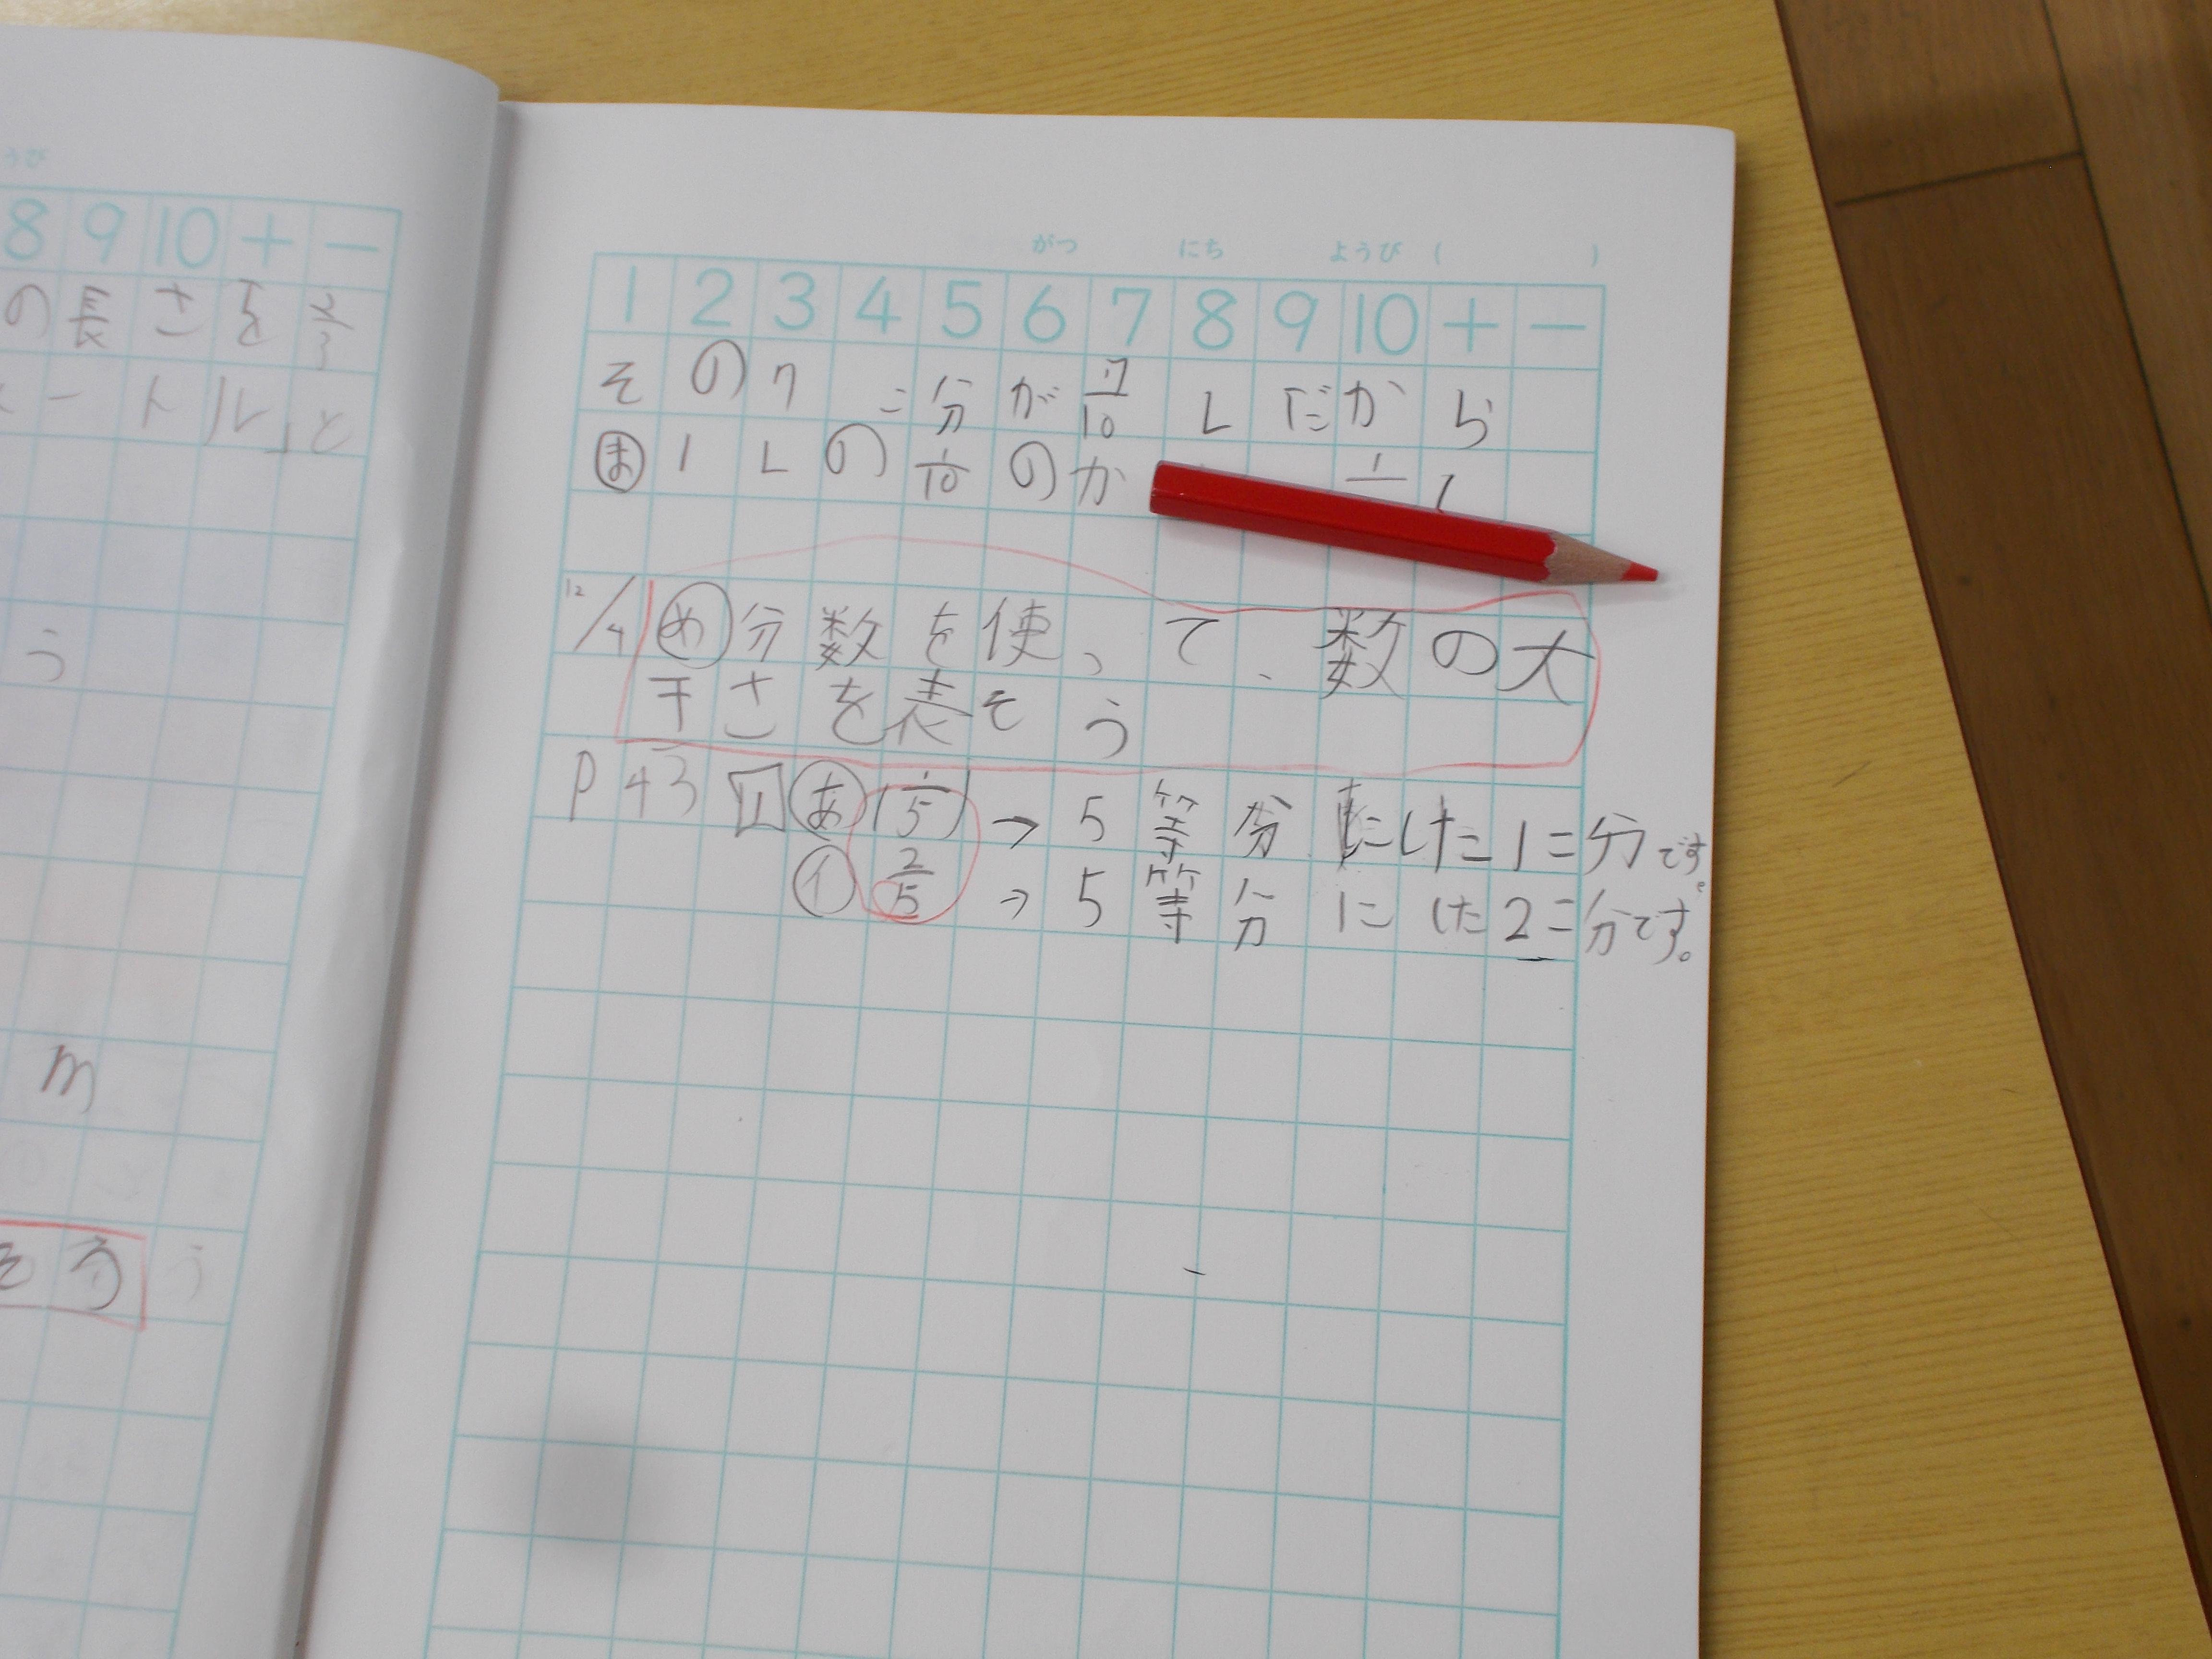 うび
8 9 10 + −
の長さを2/3
ートル」と
う
m
そう
がつ にち ようび ( )
1 2 3 4 5 6 7 8 9 10 + −
その7こ分が7/10Lだから
ま 1Lの1/10のか
12/4 め 分数を使って、数の大
きさを表そう
P43 1 あ(1/5)→5等分にした1こ分です。
イ 2/5→5等分にした2こ分です。